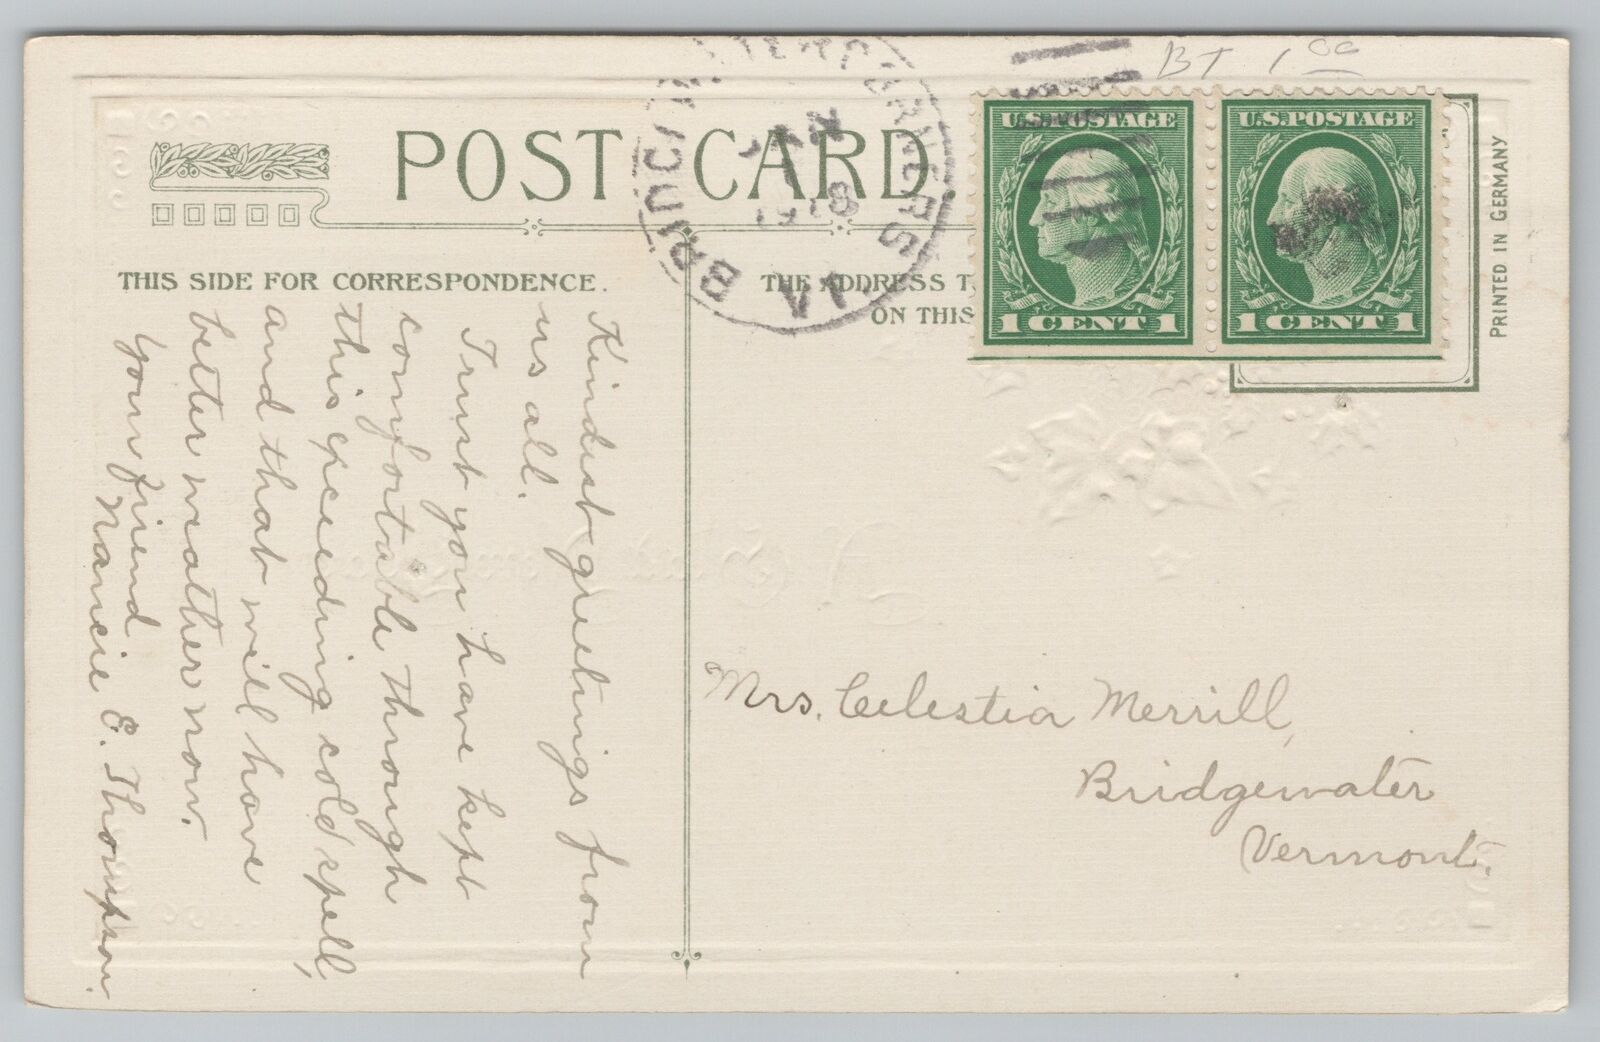 BT 1 00
POST CARD.
U.S. POSTAGE
U.S. POSTAGE
1 CENT 1
1 CENT 1
PRINTED IN GERMANY
THIS SIDE FOR CORRESPONDENCE.
THE ADDRESS T
ON THIS
CORNERS
VA
JAN
Kindest greetings from
us all.
Trust you have kept
comfortable through
this preceding cold spell,
and that will have
better weather now.
Your friend
Nancie E. Thompson.
Mrs. Celestia Merrill,
Bridgewater
Vermont.